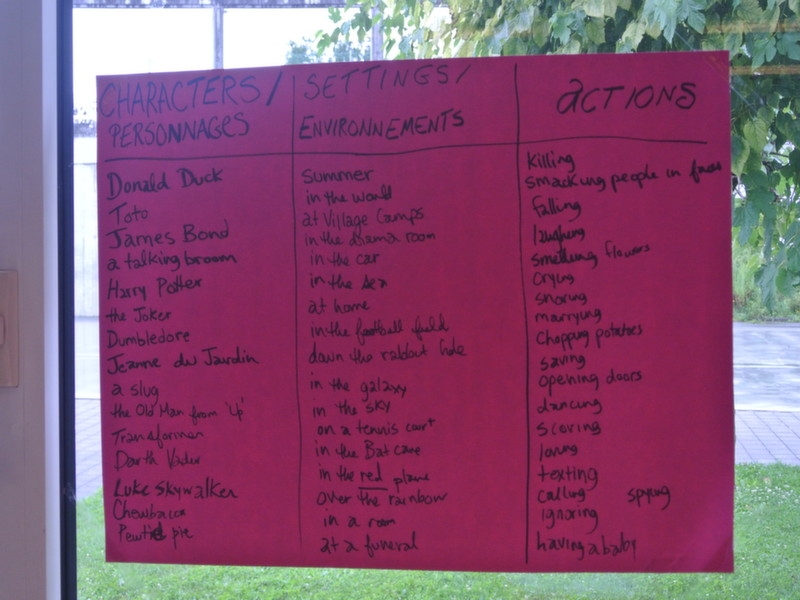 CHARACTERS/
PERSONNAGES
Donald Duck
Toto
James Bond
a talking broom
Harry Potter
the Joker
Dumbledore
Jeanne du Jardin
a slug
the Old Man from 'Up'
Transformer
Darth Vader
Luke Skywalker
Chewbacca
Pewtie pie
SETTINGS/
ENVIRONNEMENTS
Summer
in the world
at Village Camps
in the drama room
in the car
in the sea
at home
in the football field
down the rabbit hole
in the galaxy
in the sky
on a tennis court
in the Bat cave
in the red plane
over the rainbow
in a room
at a funeral
ACTIONS
Killing
smacking people in faces
falling
laughing
smelling flowers
Crying
snoring
marrying
chopping potatoes
saving
opening doors
dancing
scoring
loving
texting
calling spying
ignoring
having a baby